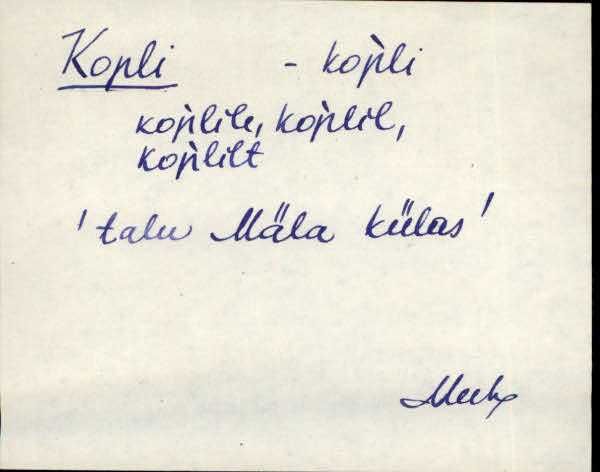 Kopli - kop̀li
kop̀lile, kop̀lil,
kop̀lilt
'talu Mäla külas'